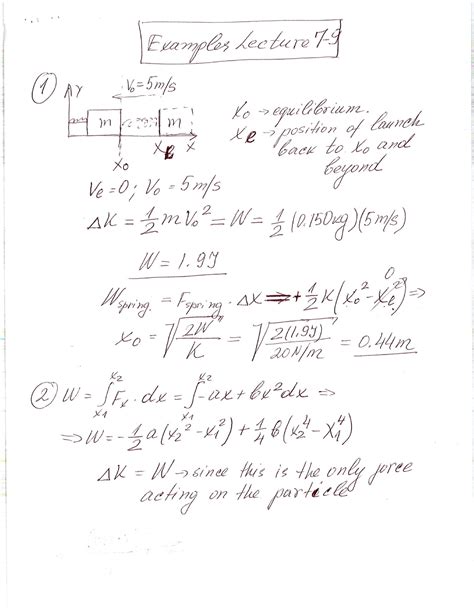 Examples Lecture 7-9
① Y V₀=5m/s
m m
X₀ Xe X
X₀ → equilibrium.
Xe → position of launch
back to X₀ and
beyond
Ve=0; V₀=5m/s
ΔK = 1/2 mV₀² = W = 1/2 (0.150kg)(5m/s)
W = 1.9J
Wspring = Fspring · ΔX ⇒ +1/2 K(X₀² - Xe²) ⇒
0
X₀ = √(2W/K) = √(2(1.9J)/20N/m) = 0.44m
② W = ∫x₁^x₂ Fx · dx = ∫x₁^x₂ -ax + bx² dx ⇒
⇒ W = -1/2 a(x₂² - x₁²) + 1/4 b(x₂⁴ - x₁⁴)
ΔK = W → since this is the only force
acting on the particle